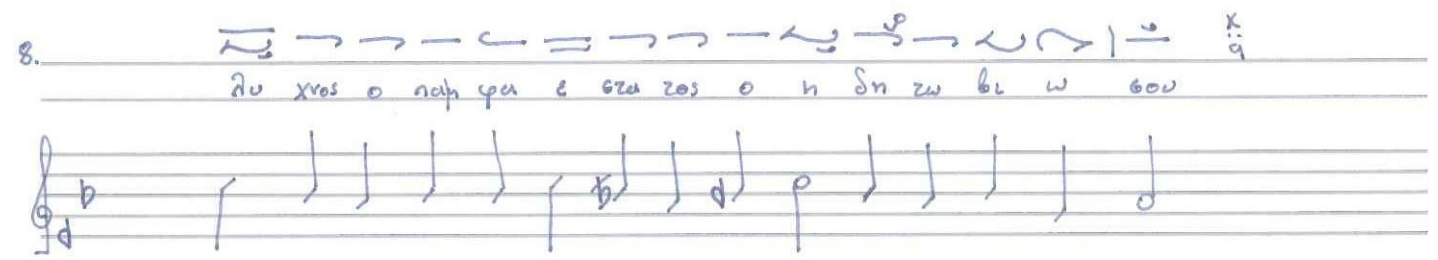 8.
λυ χνος ο παμ φα ε στα τος ο η δη τω βι ω σου